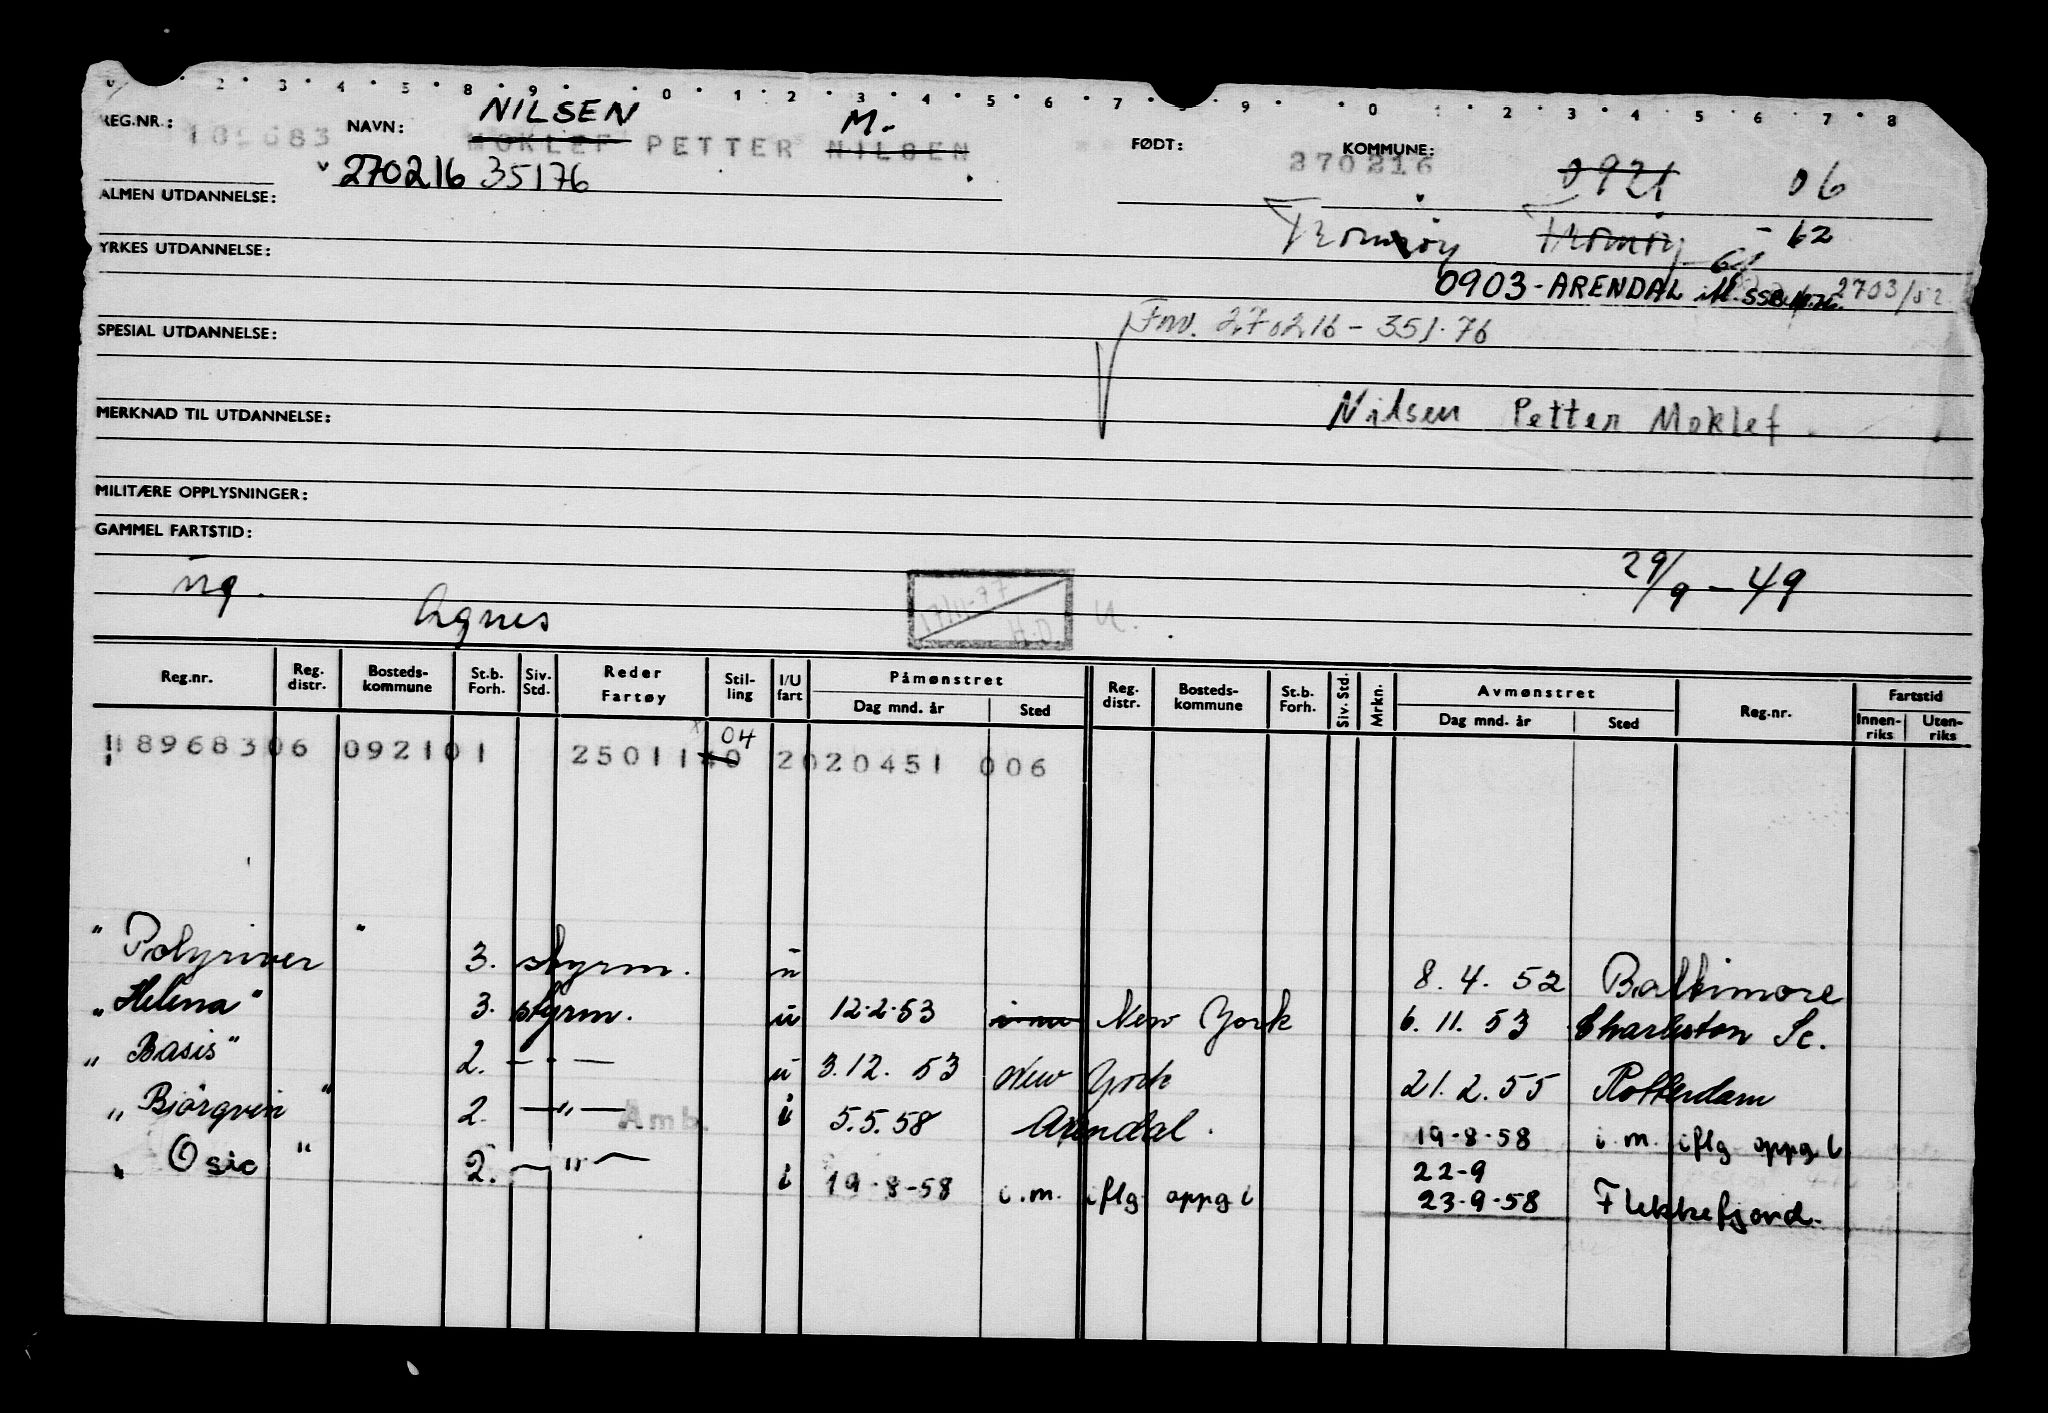 2 3 4 5 8 9 0 1 2 3 4 5 6 7 9 0 1 2 3 4 5 6 7 8
REG.NR.: 189683 NAVN: NILSEN MOKLEF PETTER NILSEN M. FØDT: 270216 KOMMUNE: 0921 06
270216 35176
ALMEN UTDANNELSE: Tromøy Tromøy - 62
YRKES UTDANNELSE: 64
0903-ARENDAL 2703/52
SPESIAL UTDANNELSE: Fnv. 270216 - 351·76
MERKNAD TIL UTDANNELSE: Nilsen Petter Moklef
MILITÆRE OPPLYSNINGER:
GAMMEL FARTSTID:
29/9 - 49
ug. Agnes 17/11-77 H.O U.
Reg.nr. Reg. distr. Bosteds-kommune St.b. Forh. Siv. Std. Reder Fartøy Stil-ling I/U fart Påmønstret Dag mnd. år Sted Reg. distr. Bosteds-kommune St.b. Forh. Siv. Std. Mrkn. Avmønstret Dag mnd. år Sted Reg.nr. Fartstid Innen-riks Uten-riks
18968306 092101 25011 40 04 2020451 006
"Polyriver" 3. styrm. u 8. 4. 52 Baltimore
"Helena" 3. styrm. u 12·2·53 i m New York 6. 11. 53 Charleston Sc.
"Basis" 2. — " — u 3.12. 53 New York 21. 2. 55 Rotterdam
"Bjørgvin" 2. — " — Amb. i 5.5.58 Arendal. 19·8·58 i. m. iflg oppg l
"Osic" 2. — " — i 19·8·58 i. m. iflg oppg l 22-9
23·9·58 Flekkefjord.